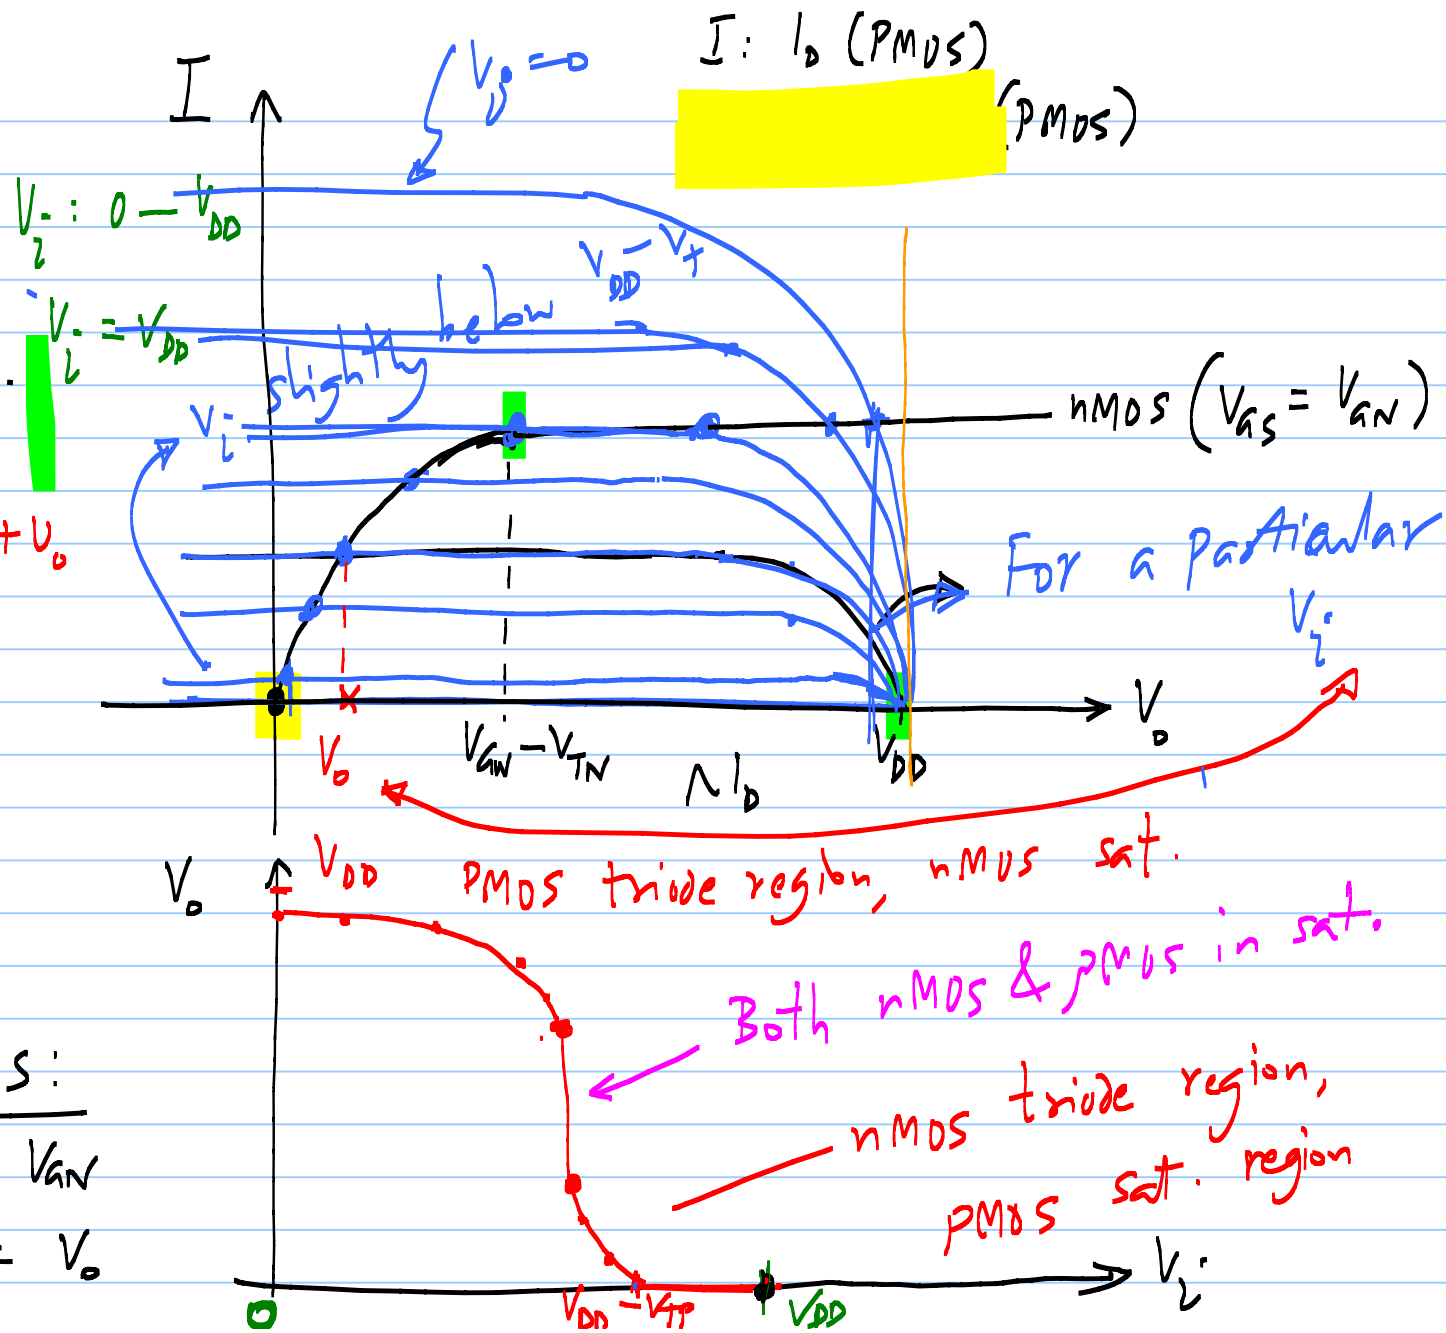 I: I_D (PMOS)
(PMOS)
V_i = 0
I
V_i : 0 - V_DD
V_DD - V_t
V_i = V_DD
slightly below
V_i
nMOS (V_GS = V_GN)
+ V_o
For a particular
V_i
V_o
V_GN - V_TN
V_DD
V_o
I_D
V_o
V_DD
PMOS triode region, nMOS sat.
Both nMOS & pMOS in sat.
S:
nMOS triode region,
V_GN
pMOS sat. region
- V_o
V_i
0
V_DD - V_TP
V_DD